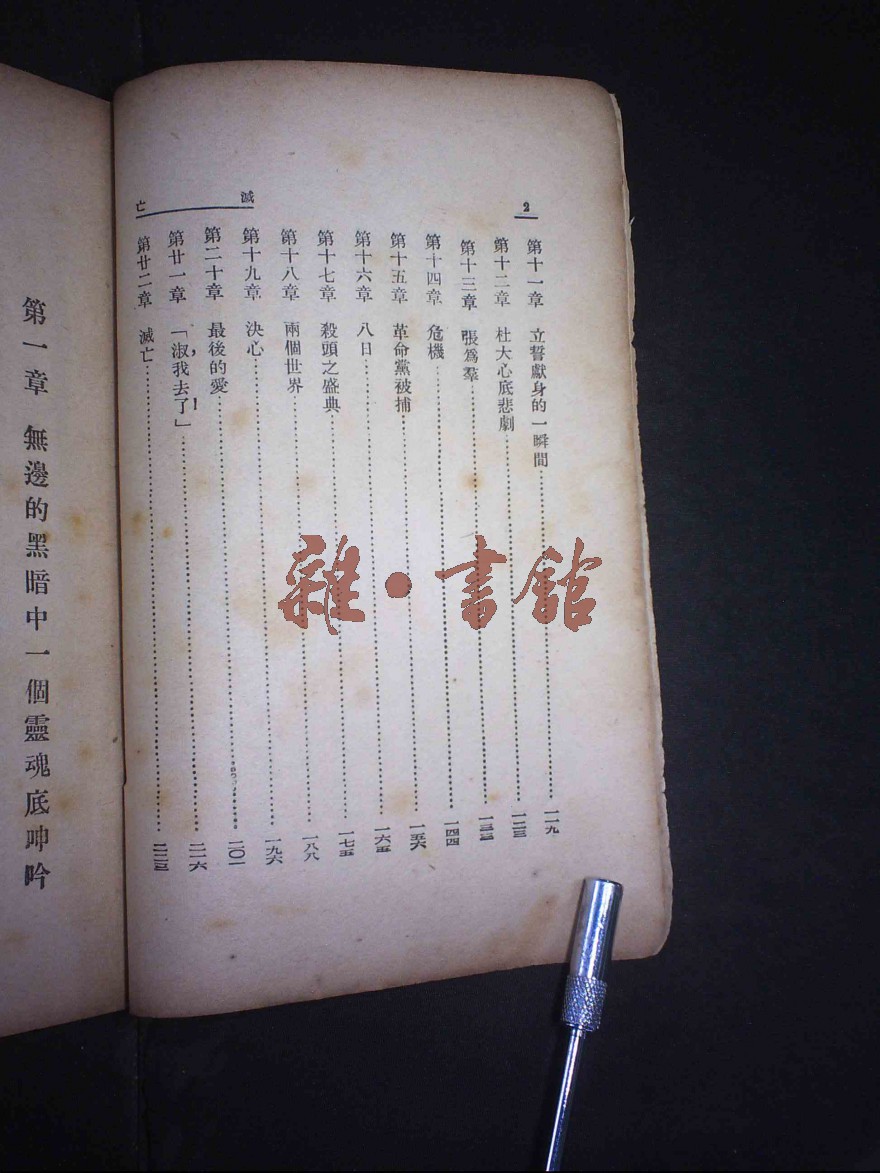 2
滅亡
第十一章 立誓獻身的一瞬間……一一九
第十二章 杜大心底悲劇……一二三
第十三章 張爲羣……一三三
第十四章 危機……一四四
第十五章 革命黨被捕……一五六
第十六章 八日……一六五
第十七章 殺頭之盛典……一七五
第十八章 兩個世界……一八八
第十九章 決心……一九六
第二十章 最後的愛……二〇一
第廿一章 「淑,我去了!」……二一六
第廿二章 滅亡……二二三
第一章 無邊的黑暗中一個靈魂底呻吟
雜·書館